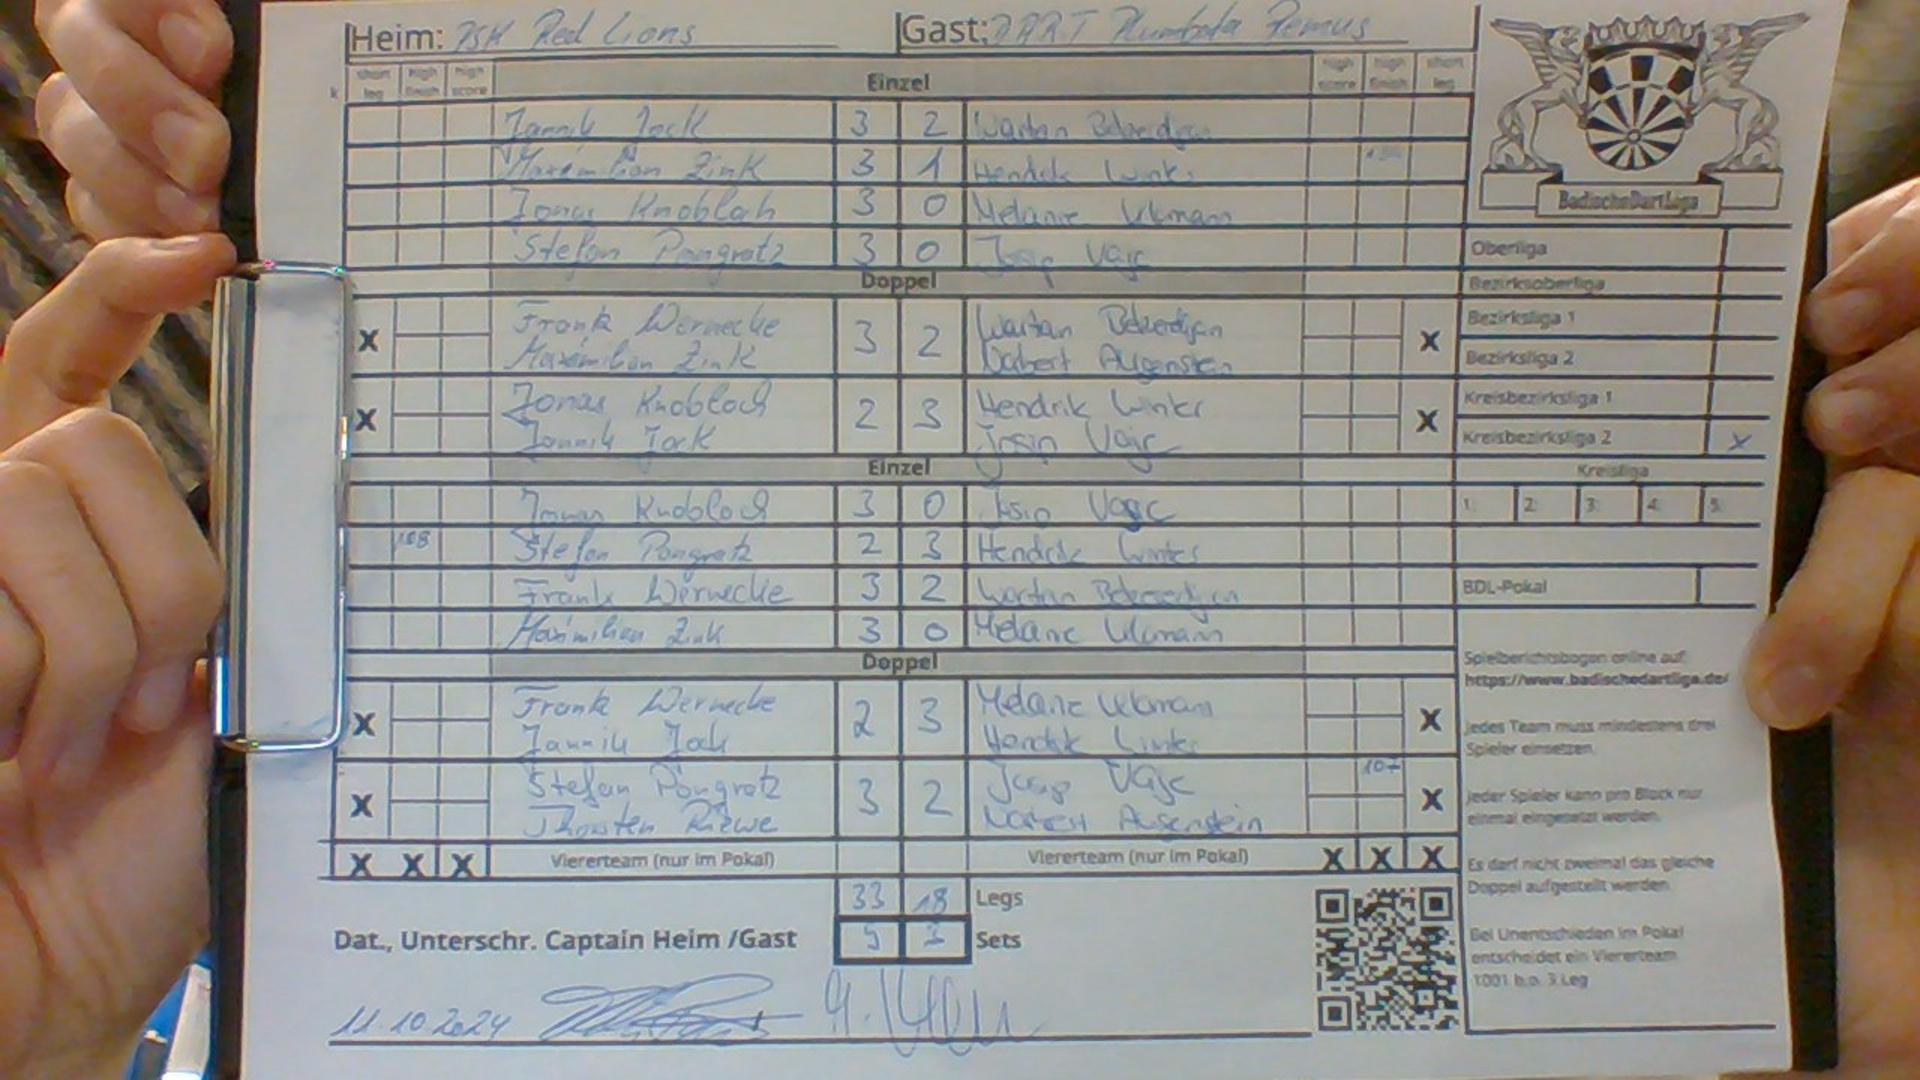 Heim: PSK Red Lions Gast: DART Plumbata Remus
k short leg high finish high score Einzel high score high finish short leg
Jannik Jock 3 2 Wartan Bekerdjan
Maximilian Zink 3 1 Hendrik Winter
Jonas Knobloch 3 0 Melanie Ukmann
Stefan Pongratz 3 0 Josip Vajc
Doppel
X Frank Wernecke 3 2 Wartan Bekerdjan X
Maximilian Zink Norbert Augenstein
X Jonas Knobloch 2 3 Hendrik Winter X
Jannik Jock Josip Vajc
Einzel
Jonas Knobloch 3 0 Josip Vajc
108 Stefan Pongratz 2 3 Hendrik Winter
Frank Wernecke 3 2 Wartan Bekerdjan
Maximilian Zink 3 0 Melanie Ukmann
Doppel
X Frank Wernecke 2 3 Melanie Ukmann X
Jannik Jock Hendrik Winter
X Stefan Pongratz 3 2 Josip Vajc 107 X
Thorsten Norbert Augenstein
X X X Viererteam (nur im Pokal) Viererteam (nur im Pokal) X X X
33 18 Legs
Dat., Unterschr. Captain Heim /Gast Sets
11.10.2024
BadischeDartLiga
Oberliga
Bezirksoberliga
Bezirksliga 1
Bezirksliga 2
Kreisbezirksliga 1
Kreisbezirksliga 2 x
Kreisliga
1. 2. 3. 4. 5.
BDL-Pokal
Spielberichtsbogen online auf:
https://www.badischedartliga.de/
Jedes Team muss mindestens drei
Spieler einsetzen.
Jeder Spieler kann pro Block nur
einmal eingesetzt werden.
Es darf nicht zweimal das gleiche
Doppel aufgestellt werden.
Bei Unentschieden im Pokal
entscheidet ein Viererteam
1001 b.o. 3 Leg